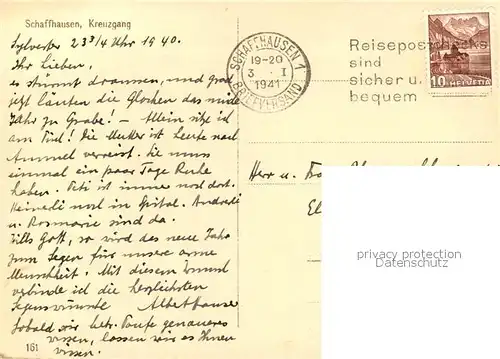 Schaffhausen, Kreuzgang
Sylvester 23 3/4 Uhr 1940.
Ihr Lieben,
es stürmt draussen, und grad
jetzt läuten die Glocken das müde
Jahr zu Grabe! – Allein sitze ich
am Tisch! Die Mutter ist heute nach
verreist. Sie muss
einmal ein paar Tage Ruhe
haben. ist immer noch dort.
noch im Spital.
u. Rosmarie sind da.
Gott, so wird das neue Jahr
zum Segen für unsere arme
Menschheit. Mit diesem Wunsch
verbinde ich die herzlichsten
Segenswünsche
Sobald wir betr. Taufe genaueres
wissen, lassen wir es Ihnen
wissen.
161
SCHAFFHAUSEN 1
19-20
3. I
1941
BRIEFVERSAND
Reisepostchecks
sind
sicher u.
bequem
10 HELVETIA
Herr u. Frau
privacy protection
Datenschutz